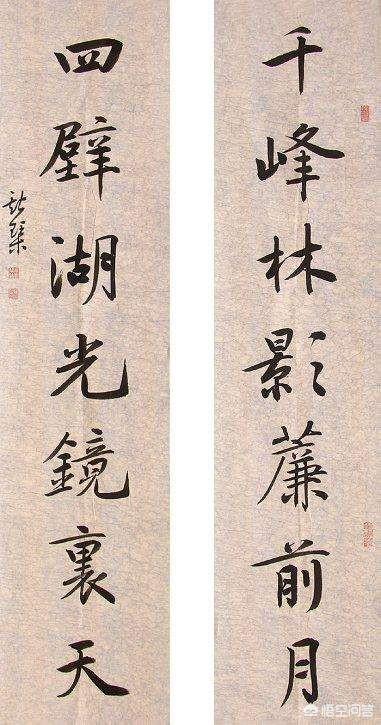 千峰林影簾前月
四壁湖光鏡裏天
悟空问答